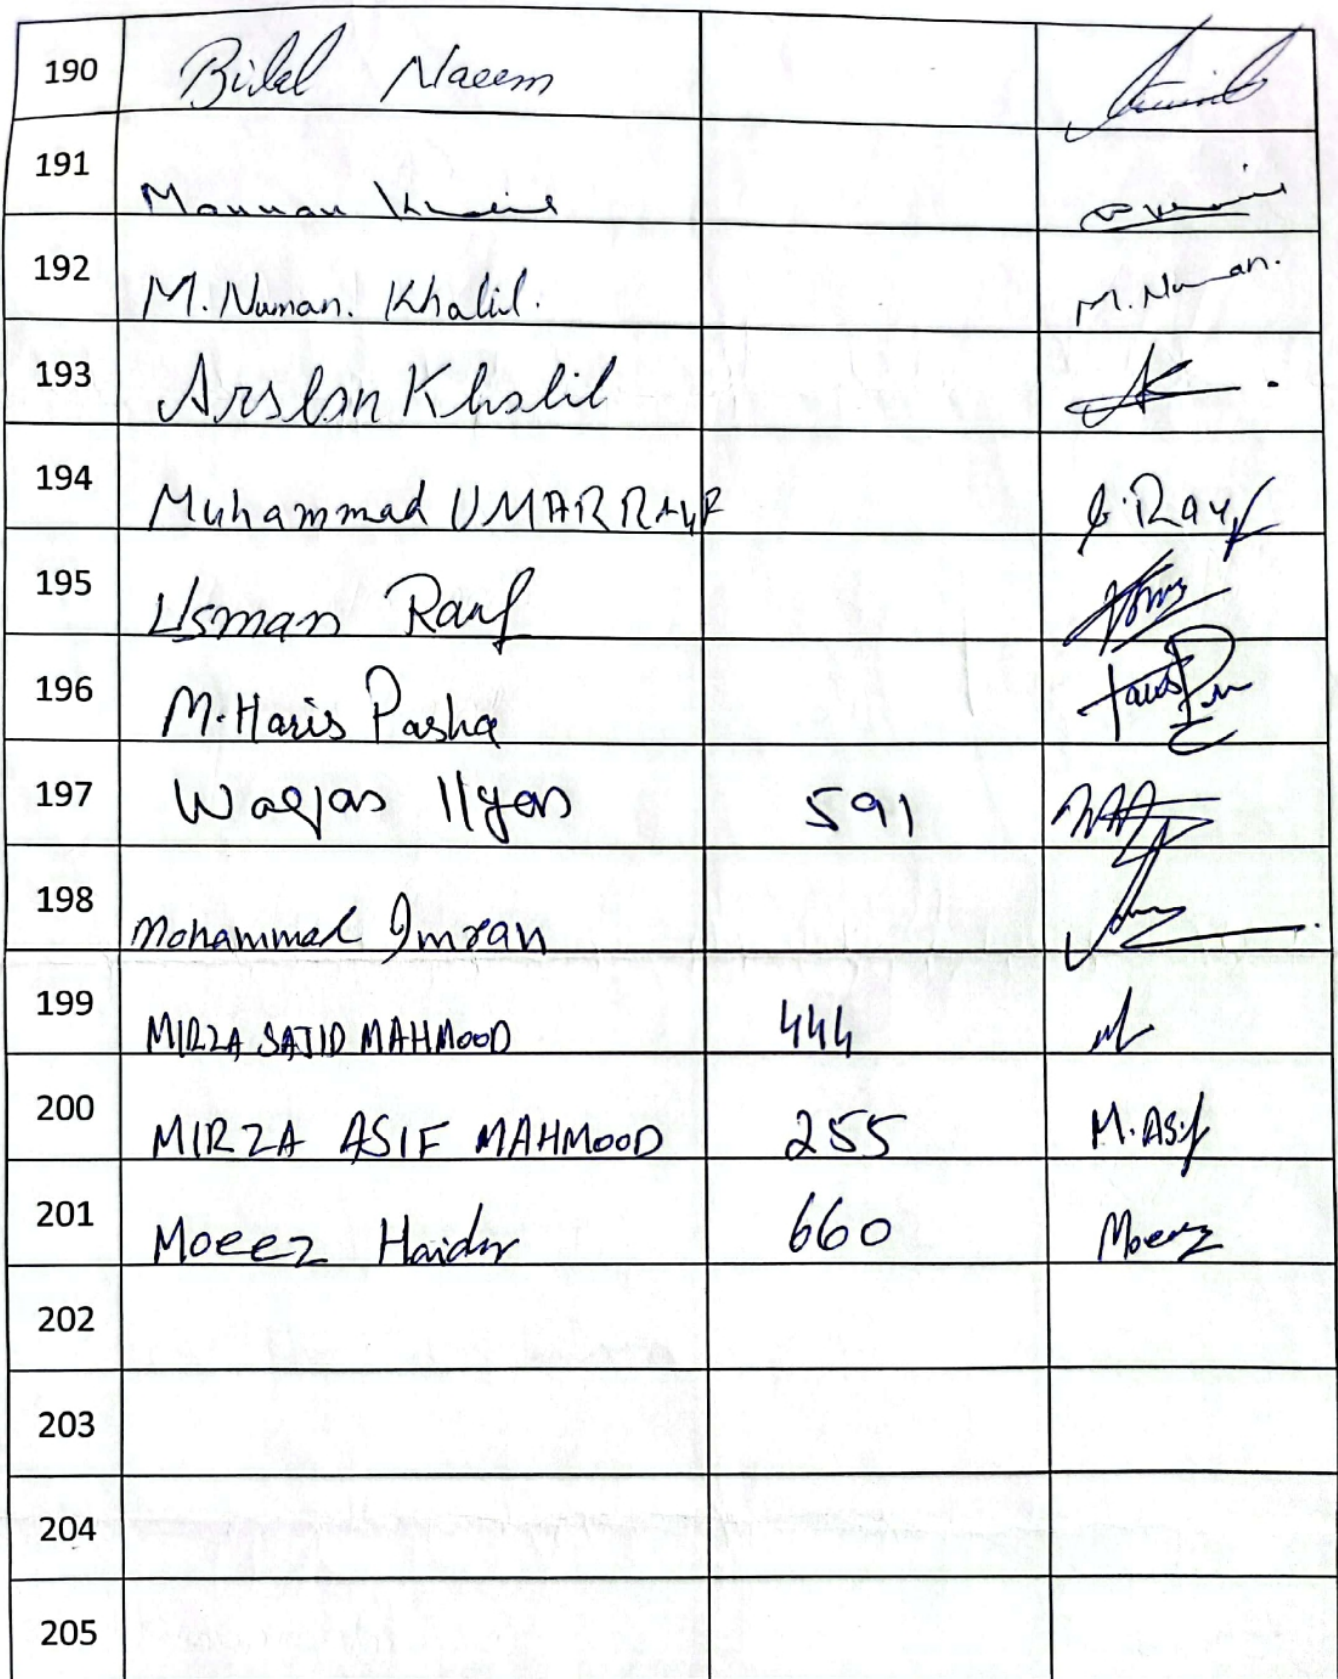 190 Bilal Naeem
191 Mannan
192 M. Numan. Khalil. M. Numan.
193 Arslan Khalil
194 Muhammad UMAR RAUF Rauf
195 Usman Rauf
196 M. Haris Pasha
197 Waqas Ilyas 591
198 Mohammad Imran
199 MIRZA SAJID MAHMOOD 444
200 MIRZA ASIF MAHMOOD 255 M. Asif
201 Moeez Haider 660 Moeez
202
203
204
205